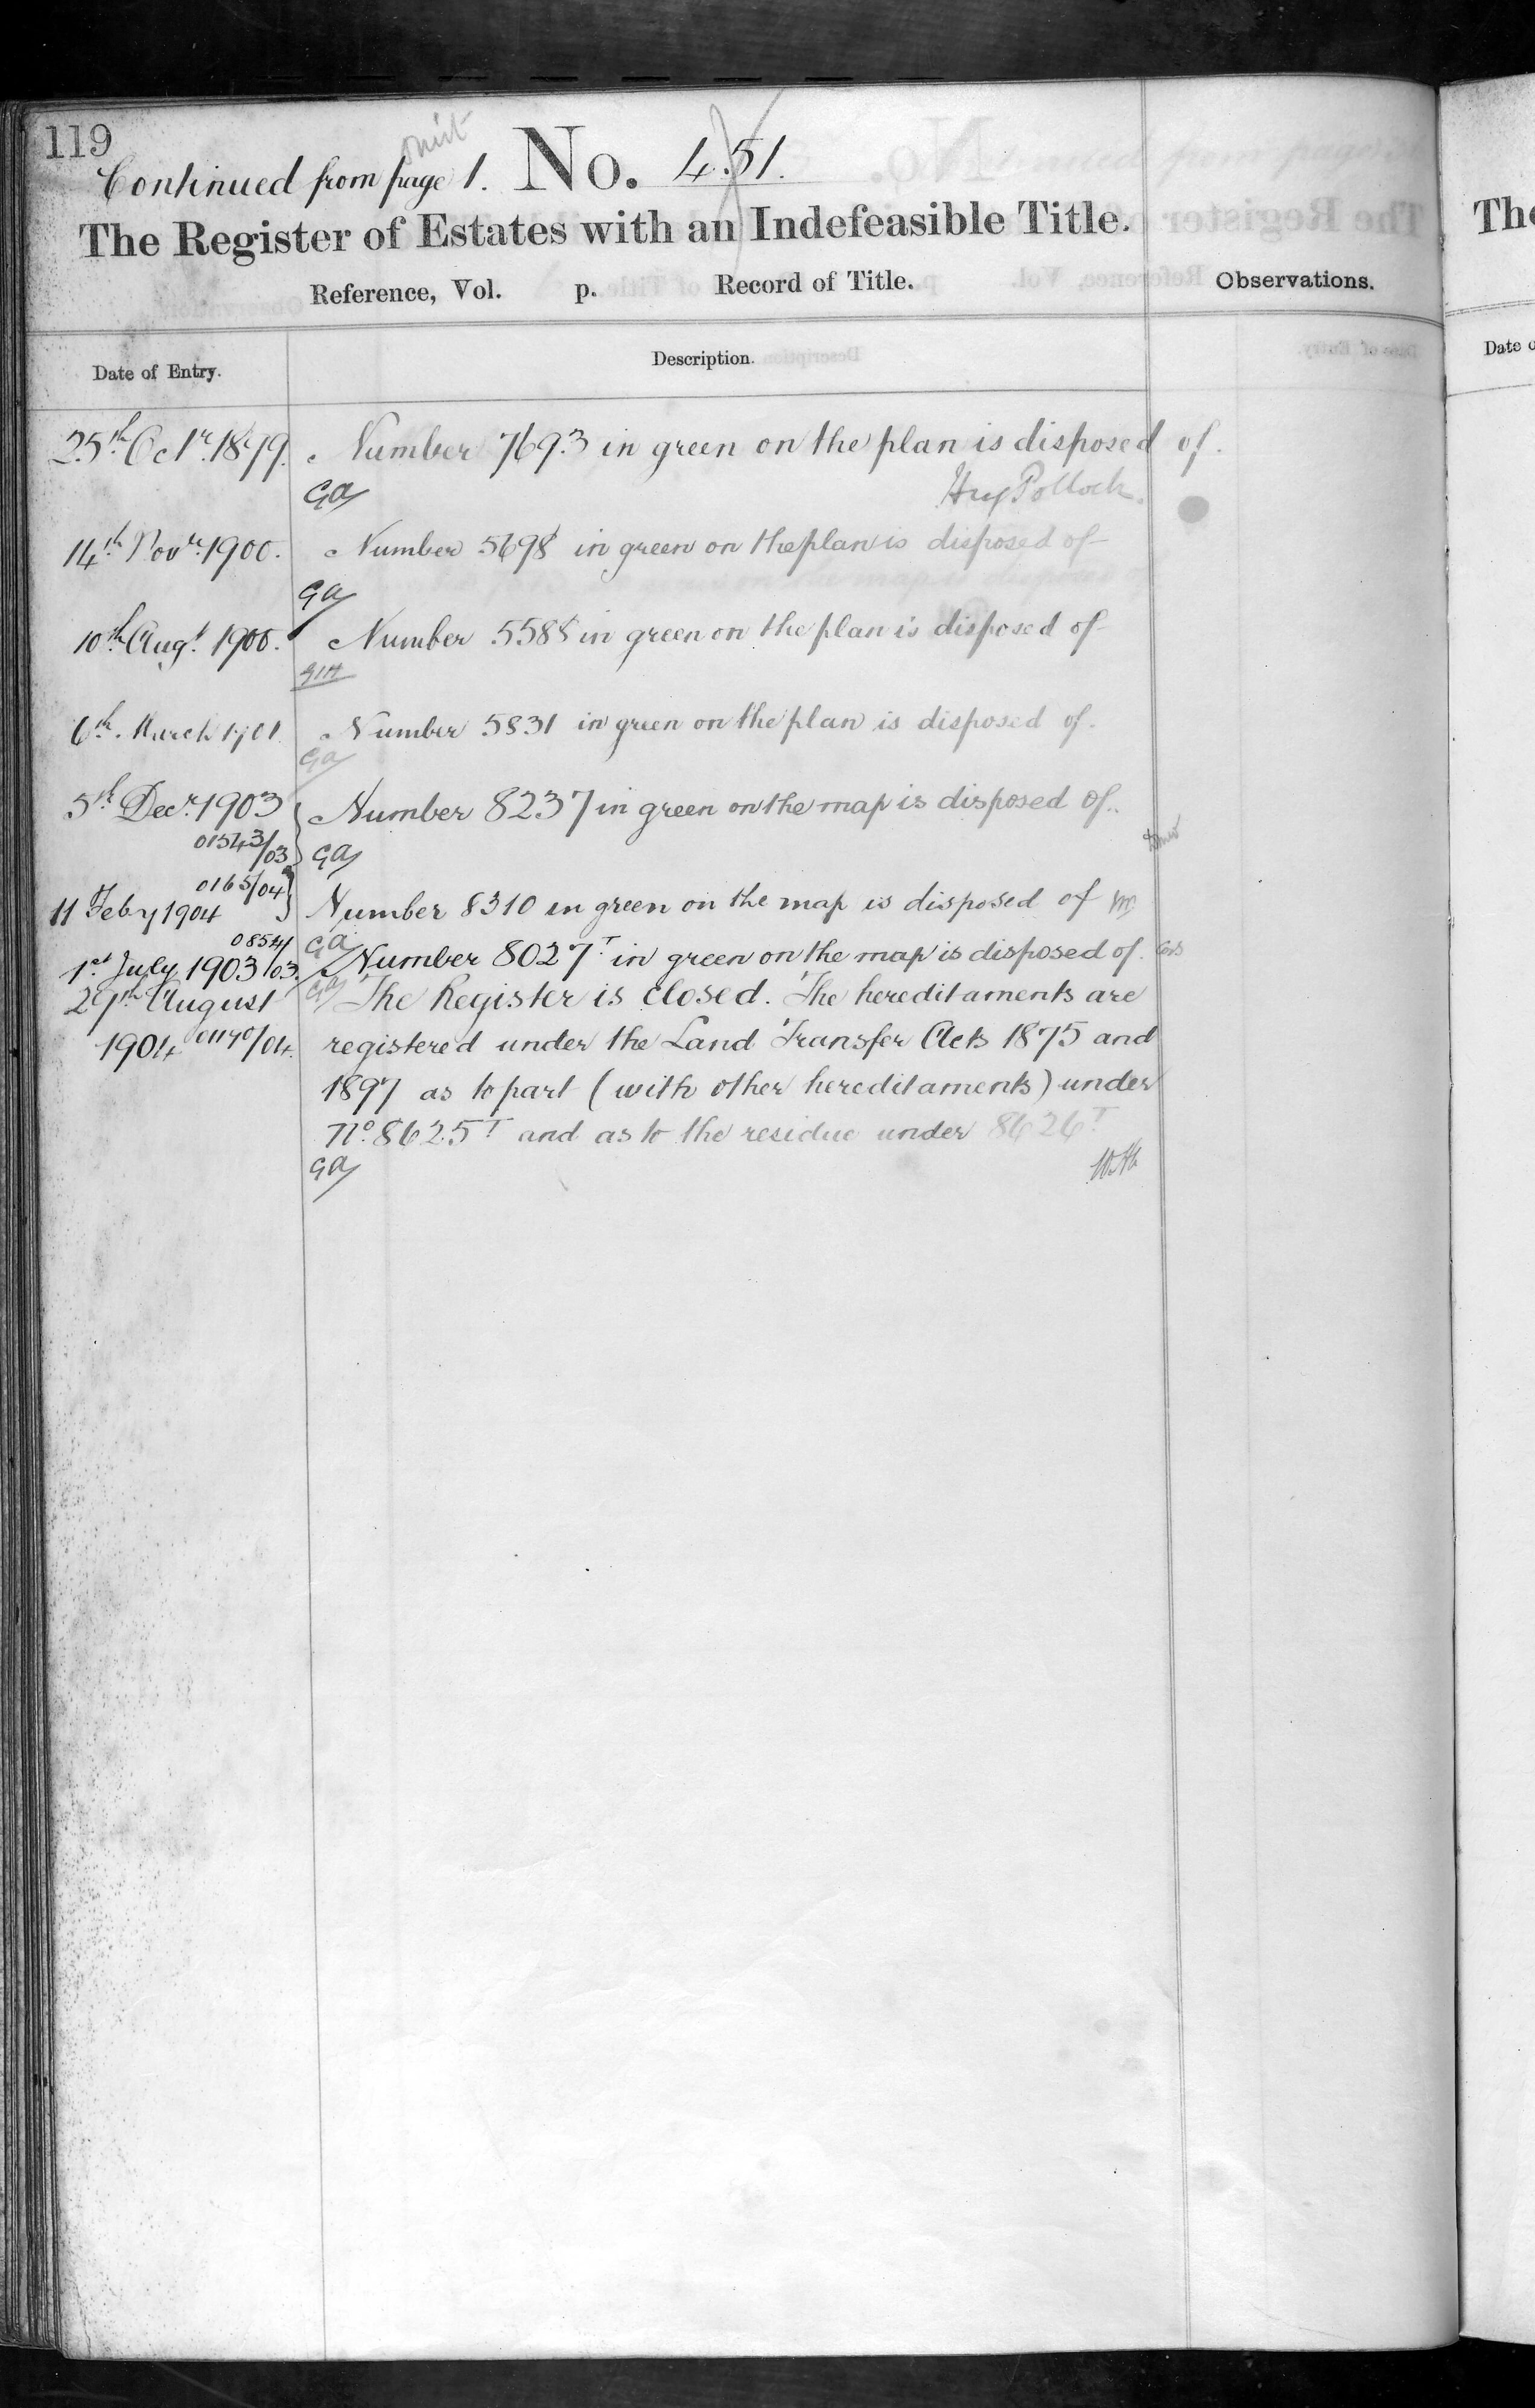 119
omit
Continued from page 1. No. 451.
The Register of Estates with an Indefeasible Title.
Reference, Vol. p. Record of Title.
Observations.
Date of Entry.
Description.
25th Octr. 1879. Number 7693 in green on the plan is disposed of.
GA
Hug Pollock.
14th Novr. 1900. Number 5698 in green on the plan is disposed of
GA
10th Augt. 1900. Number 5585 in green on the plan is disposed of
6th March 1901 Number 5831 in green on the plan is disposed of.
GA
5th Decr. 1903 Number 8237 in green on the map is disposed of.
01543/03
GA
0165/04
11 Feby 1904 Number 8310 in green on the map is disposed of
GA
0854/03.
1st July 1903 Number 8027T in green on the map is disposed of.
GA
29th August The Register is closed. The hereditaments are
1904 01190/04. registered under the Land Transfer Acts 1875 and
1897 as to part (with other hereditaments) under
No. 8625T and as to the residue under 8626T
GA
The
Date o